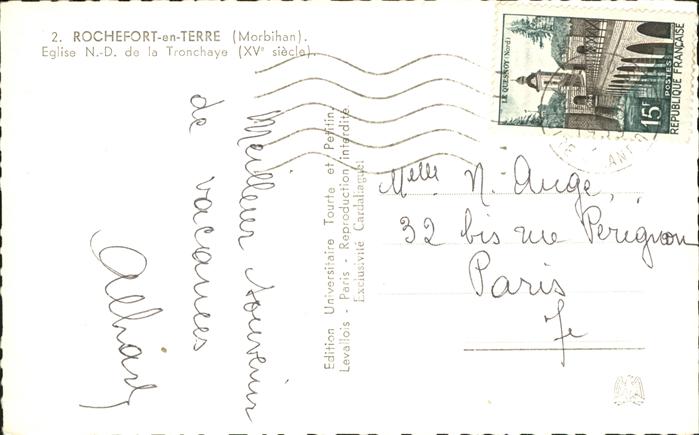 2. ROCHEFORT-en-TERRE (Morbihan).
Eglise N.-D. de la Tronchaye (XVe siècle).
Meilleur souvenir
de vacances
Edition Universitaire Tourte et Petitin,
Levallois - Paris - Reproduction interdite
Exclusivité Cardaliaguet
LE QUESNOY (Nord)
15F
POSTES
REPUBLIQUE FRANÇAISE
Melle N. Auge,
32 bis rue Perignon
Paris
7e